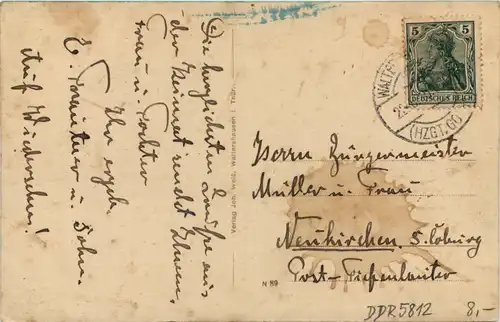 Die herzlichsten Grüße aus
der Heimat sendet Ihnen,
Frau u. Tochter
Ihr ergeb.
E. u. Sohn.
Auf Wiedersehen!
Verlag Joh. Waltershausen i. Thür.
5 5
DEUTSCHES REICH
WALTE
(HZGT. GO
Herrn Bürgermeister
Müller u. Frau
Neukirchen, b. Coburg
Post-Tiefenlauter
N 89
DDR5812 8,-